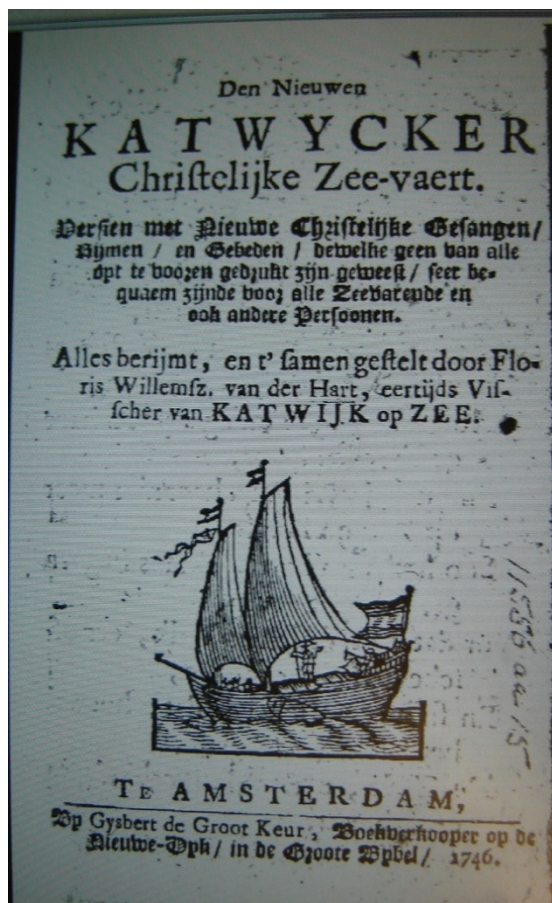 Den Nieuwen
KATWYCKER
Chriſtelijke Zee-vaert.
Versien met Nieuwe Chriſtelijke Gesangen /
Rijmen / en Gebeden / dewelke geen van alle
opt te vooren gedrukt zijn geweeſt / seer be-
quaem zijnde voor alle Zeevarende en
ook andere Persoonen.
Alles berijmt, en t' ſamen geſtelt door Flo-
ris Willemſz. van der Hart, eertijds Viſ-
ſcher van KATWIJK op ZEE.
11556 aa 15
TE AMSTERDAM,
By Gysbert de Groot Keur, Boekverkooper op de
Nieuwe-Dyk / in de Groote Bybel / 1746.